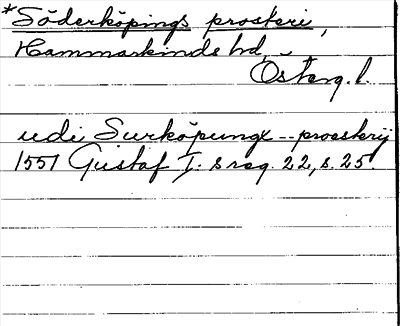 *Söderköpings prosteri,
Hammarkinds hd
Österg.l.
udi Surköpungx -- proesterij
1551 Gustaf I:s reg. 22, s. 25.